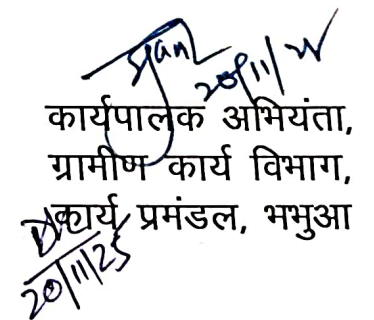 20/11/25
कार्यपालक अभियंता,
ग्रामीण कार्य विभाग,
कार्य प्रमंडल, भभुआ
20/11/25